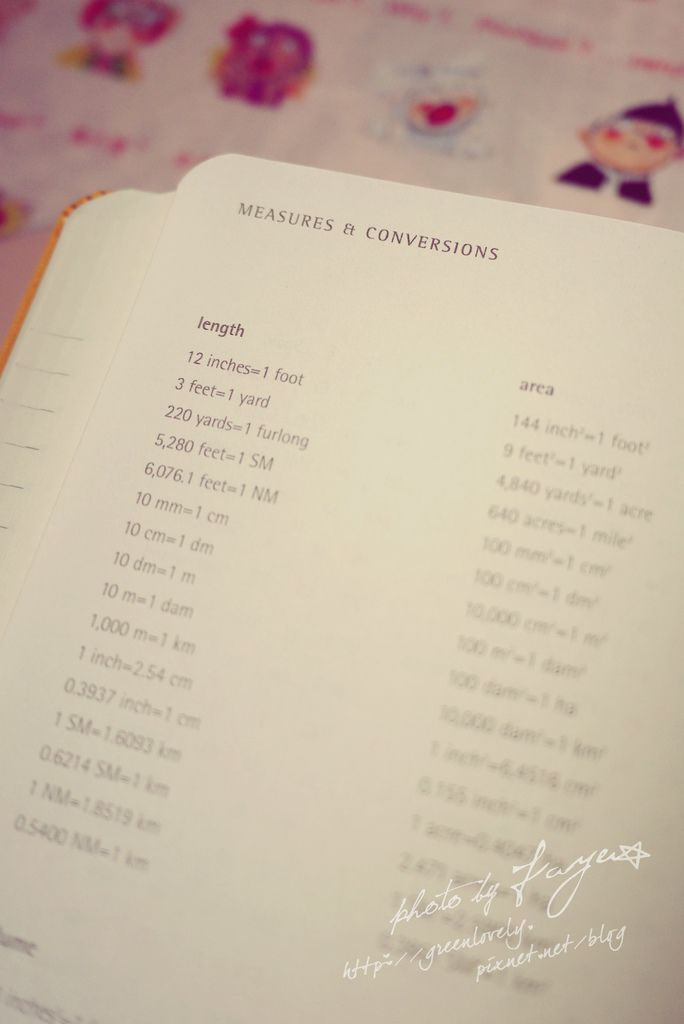 MEASURES & CONVERSIONS
length
12 inches=1 foot
3 feet=1 yard
220 yards=1 furlong
5,280 feet=1 SM
6,076.1 feet=1 NM
10 mm=1 cm
10 cm=1 dm
10 dm=1 m
10 m=1 dam
1,000 m=1 km
1 inch=2.54 cm
0.3937 inch=1 cm
1 SM=1.6093 km
0.6214 SM=1 km
1 NM=1.8519 km
0.5400 NM=1 km
area
144 inch²=1 foot²
9 feet²=1 yard²
4,840 yards²=1 acre
640 acres=1 mile²
100 mm²=1 cm²
100 cm²=1 dm²
10,000 cm²=1 m²
100 m²=1 dam²
100 dam²=1 ha
10,000 dam²=1 km²
1 inch²=6.4516 cm²
0.155 inch²=1 cm²
photo by Faye
http://greenlovely.
pixnet.net/blog